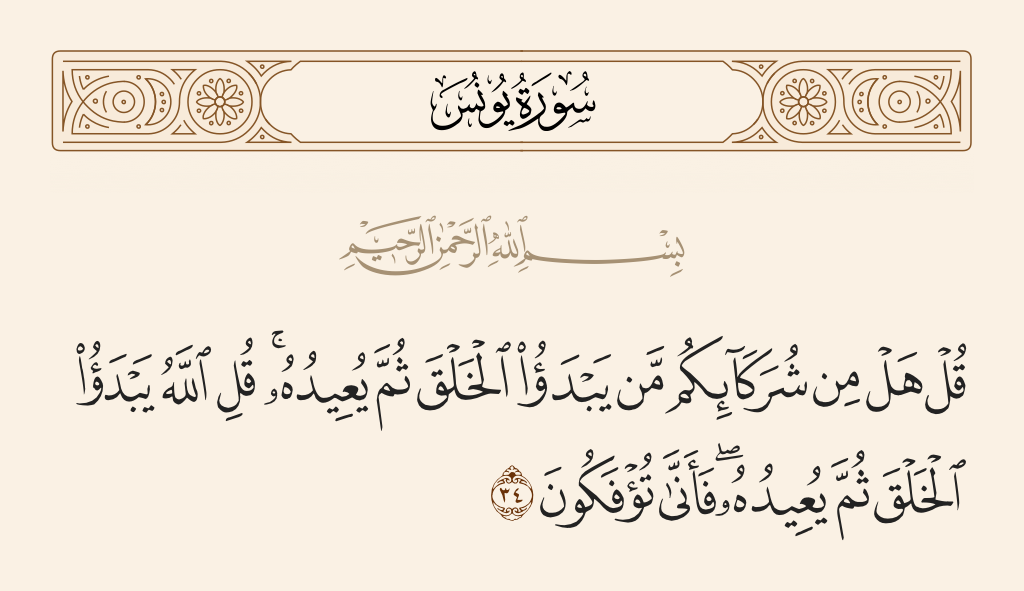 سُورَةُ يُونُسَ
بِسْمِ ٱللَّهِ ٱلرَّحْمَٰنِ ٱلرَّحِيمِ
قُلْ هَلْ مِن شُرَكَآئِكُم مَّن يَبْدَؤُا۟ ٱلْخَلْقَ ثُمَّ يُعِيدُهُۥ ۚ قُلِ ٱللَّهُ يَبْدَؤُا۟
ٱلْخَلْقَ ثُمَّ يُعِيدُهُۥ ۖ فَأَنَّىٰ تُؤْفَكُونَ ٣٤